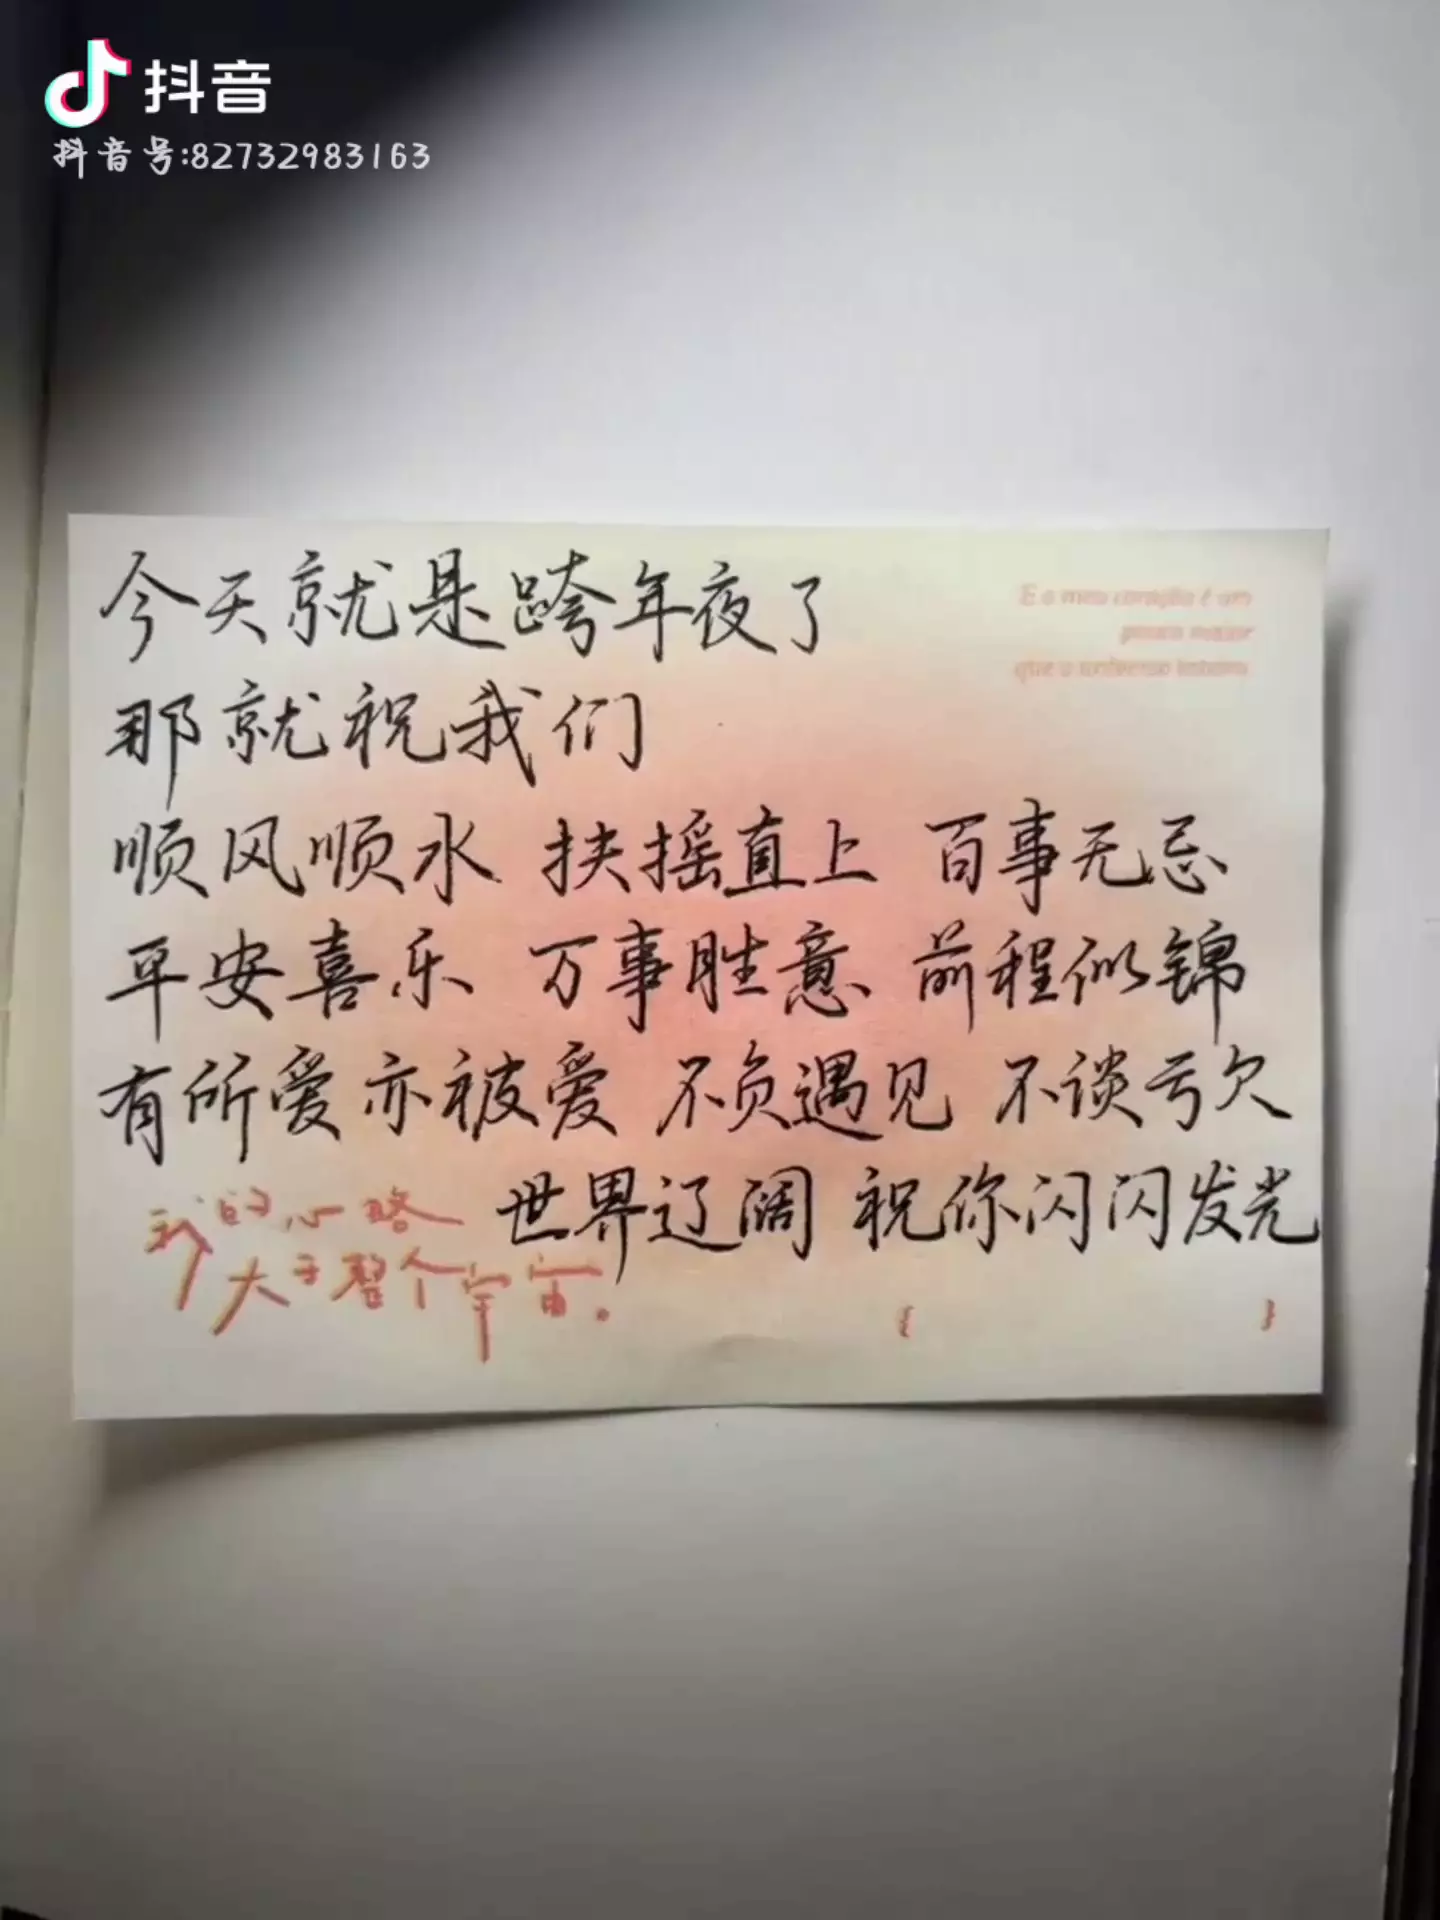 抖音
抖音号:82732983163
今天就是跨年夜了
E o meu coração é um
pouco maior
que o universo inteiro.
那就祝我们
顺风顺水 扶摇直上 百事无忌
平安喜乐 万事胜意 前程似锦
有所爱亦被爱 不负遇见 不谈亏欠
世界辽阔 祝你闪闪发光
我的心略
大于整个宇宙。
{ }